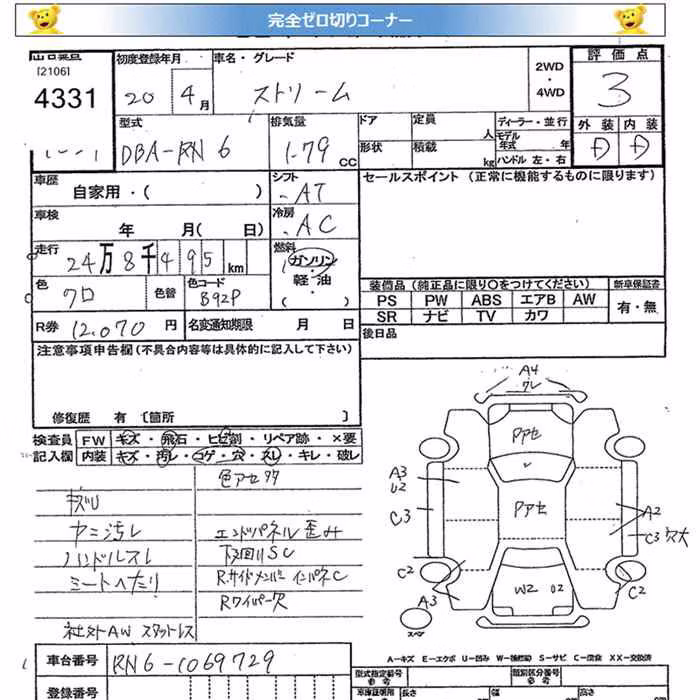 完全ゼロ切りコーナー
[2106]
4331
初度登録年月
20年 4月
車名・グレード
ストリーム
2WD
・
4WD
評価点
3
外装 内装
D D
型式
DBA-RN6
排気量
1.79 CC
ドア
形状
定員 人
積載 kg
ディーラー・並行
モデル年式 年
ハンドル 左・右
車歴
自家用・( )
シフト
AT
セールスポイント (正常に機能するものに限ります)
車検
年 月( 日)
冷房
AC
走行
24万8千495km
燃料
ガソリン
軽・油
( )
色
クロ
色替
色コード
B92P
装備品 (純正品に限り○をつけてください)
新車保証書
PS PW ABS エアB AW
SR ナビ TV カワ
有・無
R券 12,070円
名変通知期限 月 日
後日品
注意事項申告欄(不具合内容等は具体的に記入して下さい)
修復歴 有 〔箇所 〕
検査員 FW キズ・飛石・ヒビ割・リペア跡・×要
記入欄 内装 キズ・汚レ・コゲ・穴・スレ・キレ・破レ
色アセ
キズU
ヤニ汚レ
ハンドルスレ
シートヘタリ
社外AW スタッドレス
エンドパネル歪み
下回りSC
Rサイドメンバー インパネC
Rワイパー欠
A4
ワレ
Pアセ
A3
U2
C3
Pアセ
A2
C3 欠大
C2
A3
W2 U2
C2
スペア
A-キズ E-エクボ U-凹み W-補修跡 S-サビ C-腐食 XX-交換済
車台番号 RN6-1069729
登録番号
型式指定番号
参考
類別区分番号
参考
長さ
幅
高さ